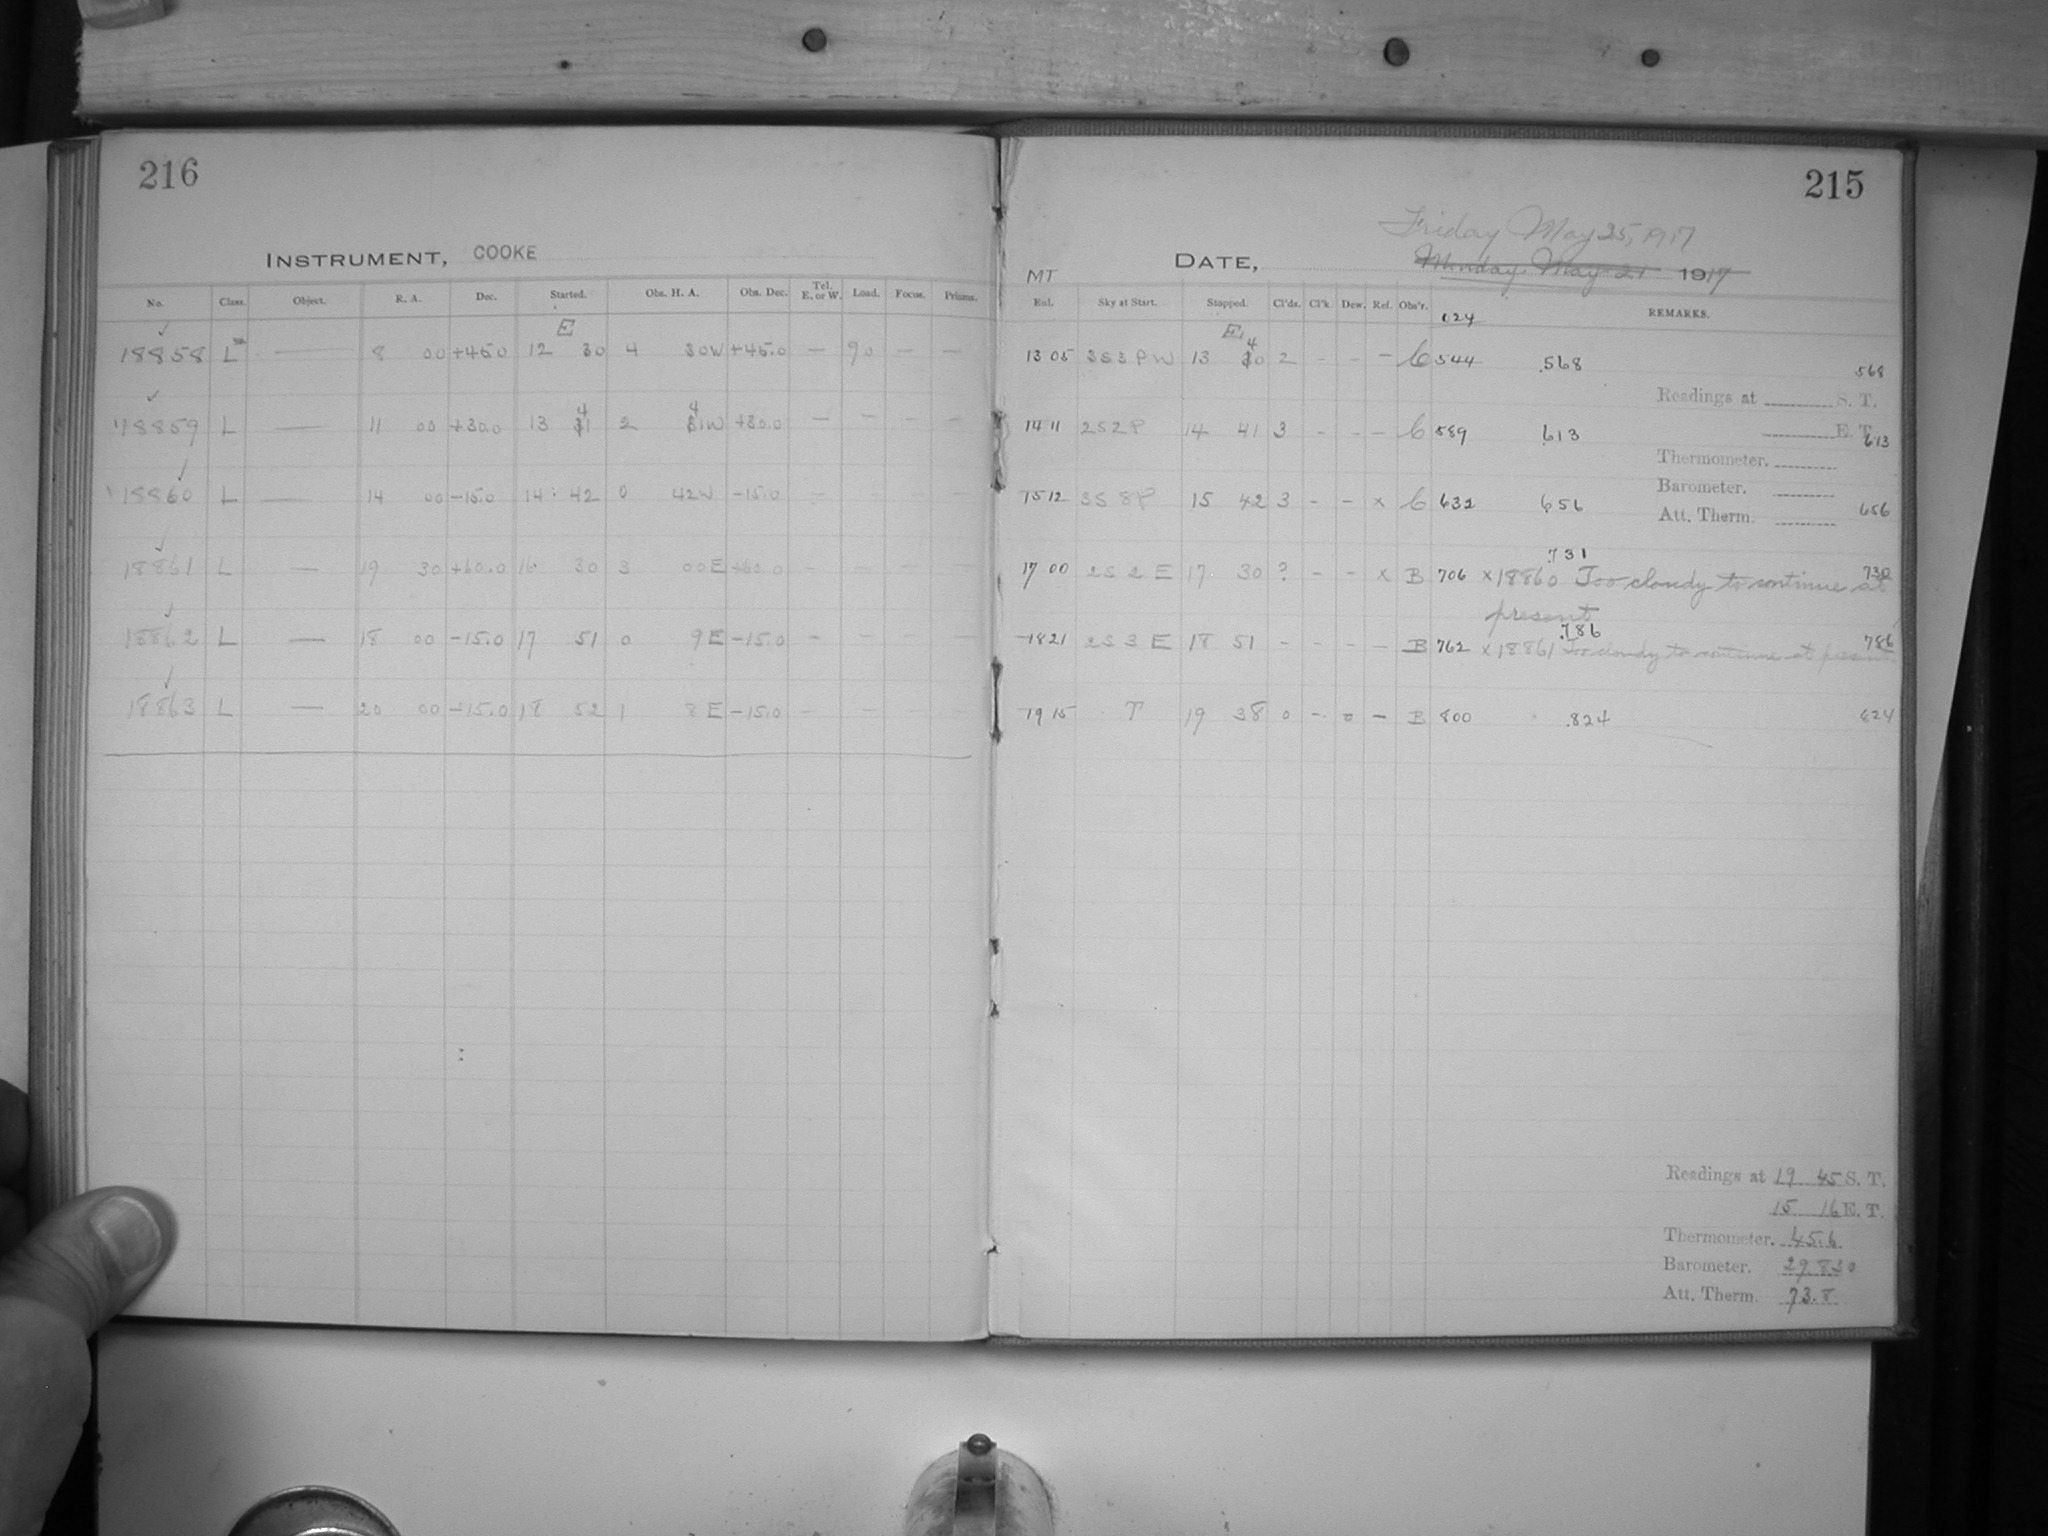 216
INSTRUMENT, COOKE
No. Class. Object. R. A. Dec. Started. Obs. H. A. Obs. Dec. Tel. E. or W. Load. Focus. Prisms.
E
18858 L — 8 00 +45.0 12 30 4 30W +45.0 — 90 — —
4 4
18859 L — 11 00 +30.0 13 31 2 31W +30.0 — — — —
18860 L — 14 00 -15.0 14 42 0 42W -15.0
18861 L — 19 30 +60.0 16 30 3 00E +60.0 -
18862 L — 18 00 -15.0 17 51 0 9E -15.0 - -
18863 L — 20 00 -15.0 18 52 1 8E -15.0 — -
215
Friday May 25, 1917
DATE, Monday May 21 1917
MT
Eul. Sky at Start. Stopped. Cl'ds. Cl'k. Dew. Ref. Obs'r. 024 REMARKS.
E 4
13 05 3S3PW 13 30 2 - - - C 544 .568 568
Readings at S. T.
14 11 2S2P 14 41 3 - - - C 589 .613 E. T. 613
Thermometer.
Barometer.
15 12 3S8P 15 42 3 - - x C 632 656 656
Att. Therm.
.731
17 00 2S2E 17 30 ? - - x B 706 x18860 Too cloudy to continue at 730
present
.786
18 21 2S3E 18 51 - - - - B 762 x18861 Too cloudy to continue at present. 786
19 15 T 19 38 0 - 0 - B 800 .824 824
Readings at 19 45 S. T.
15 16 E. T.
Thermometer. 45.6
Barometer. 29.830
Att. Therm. 73.8